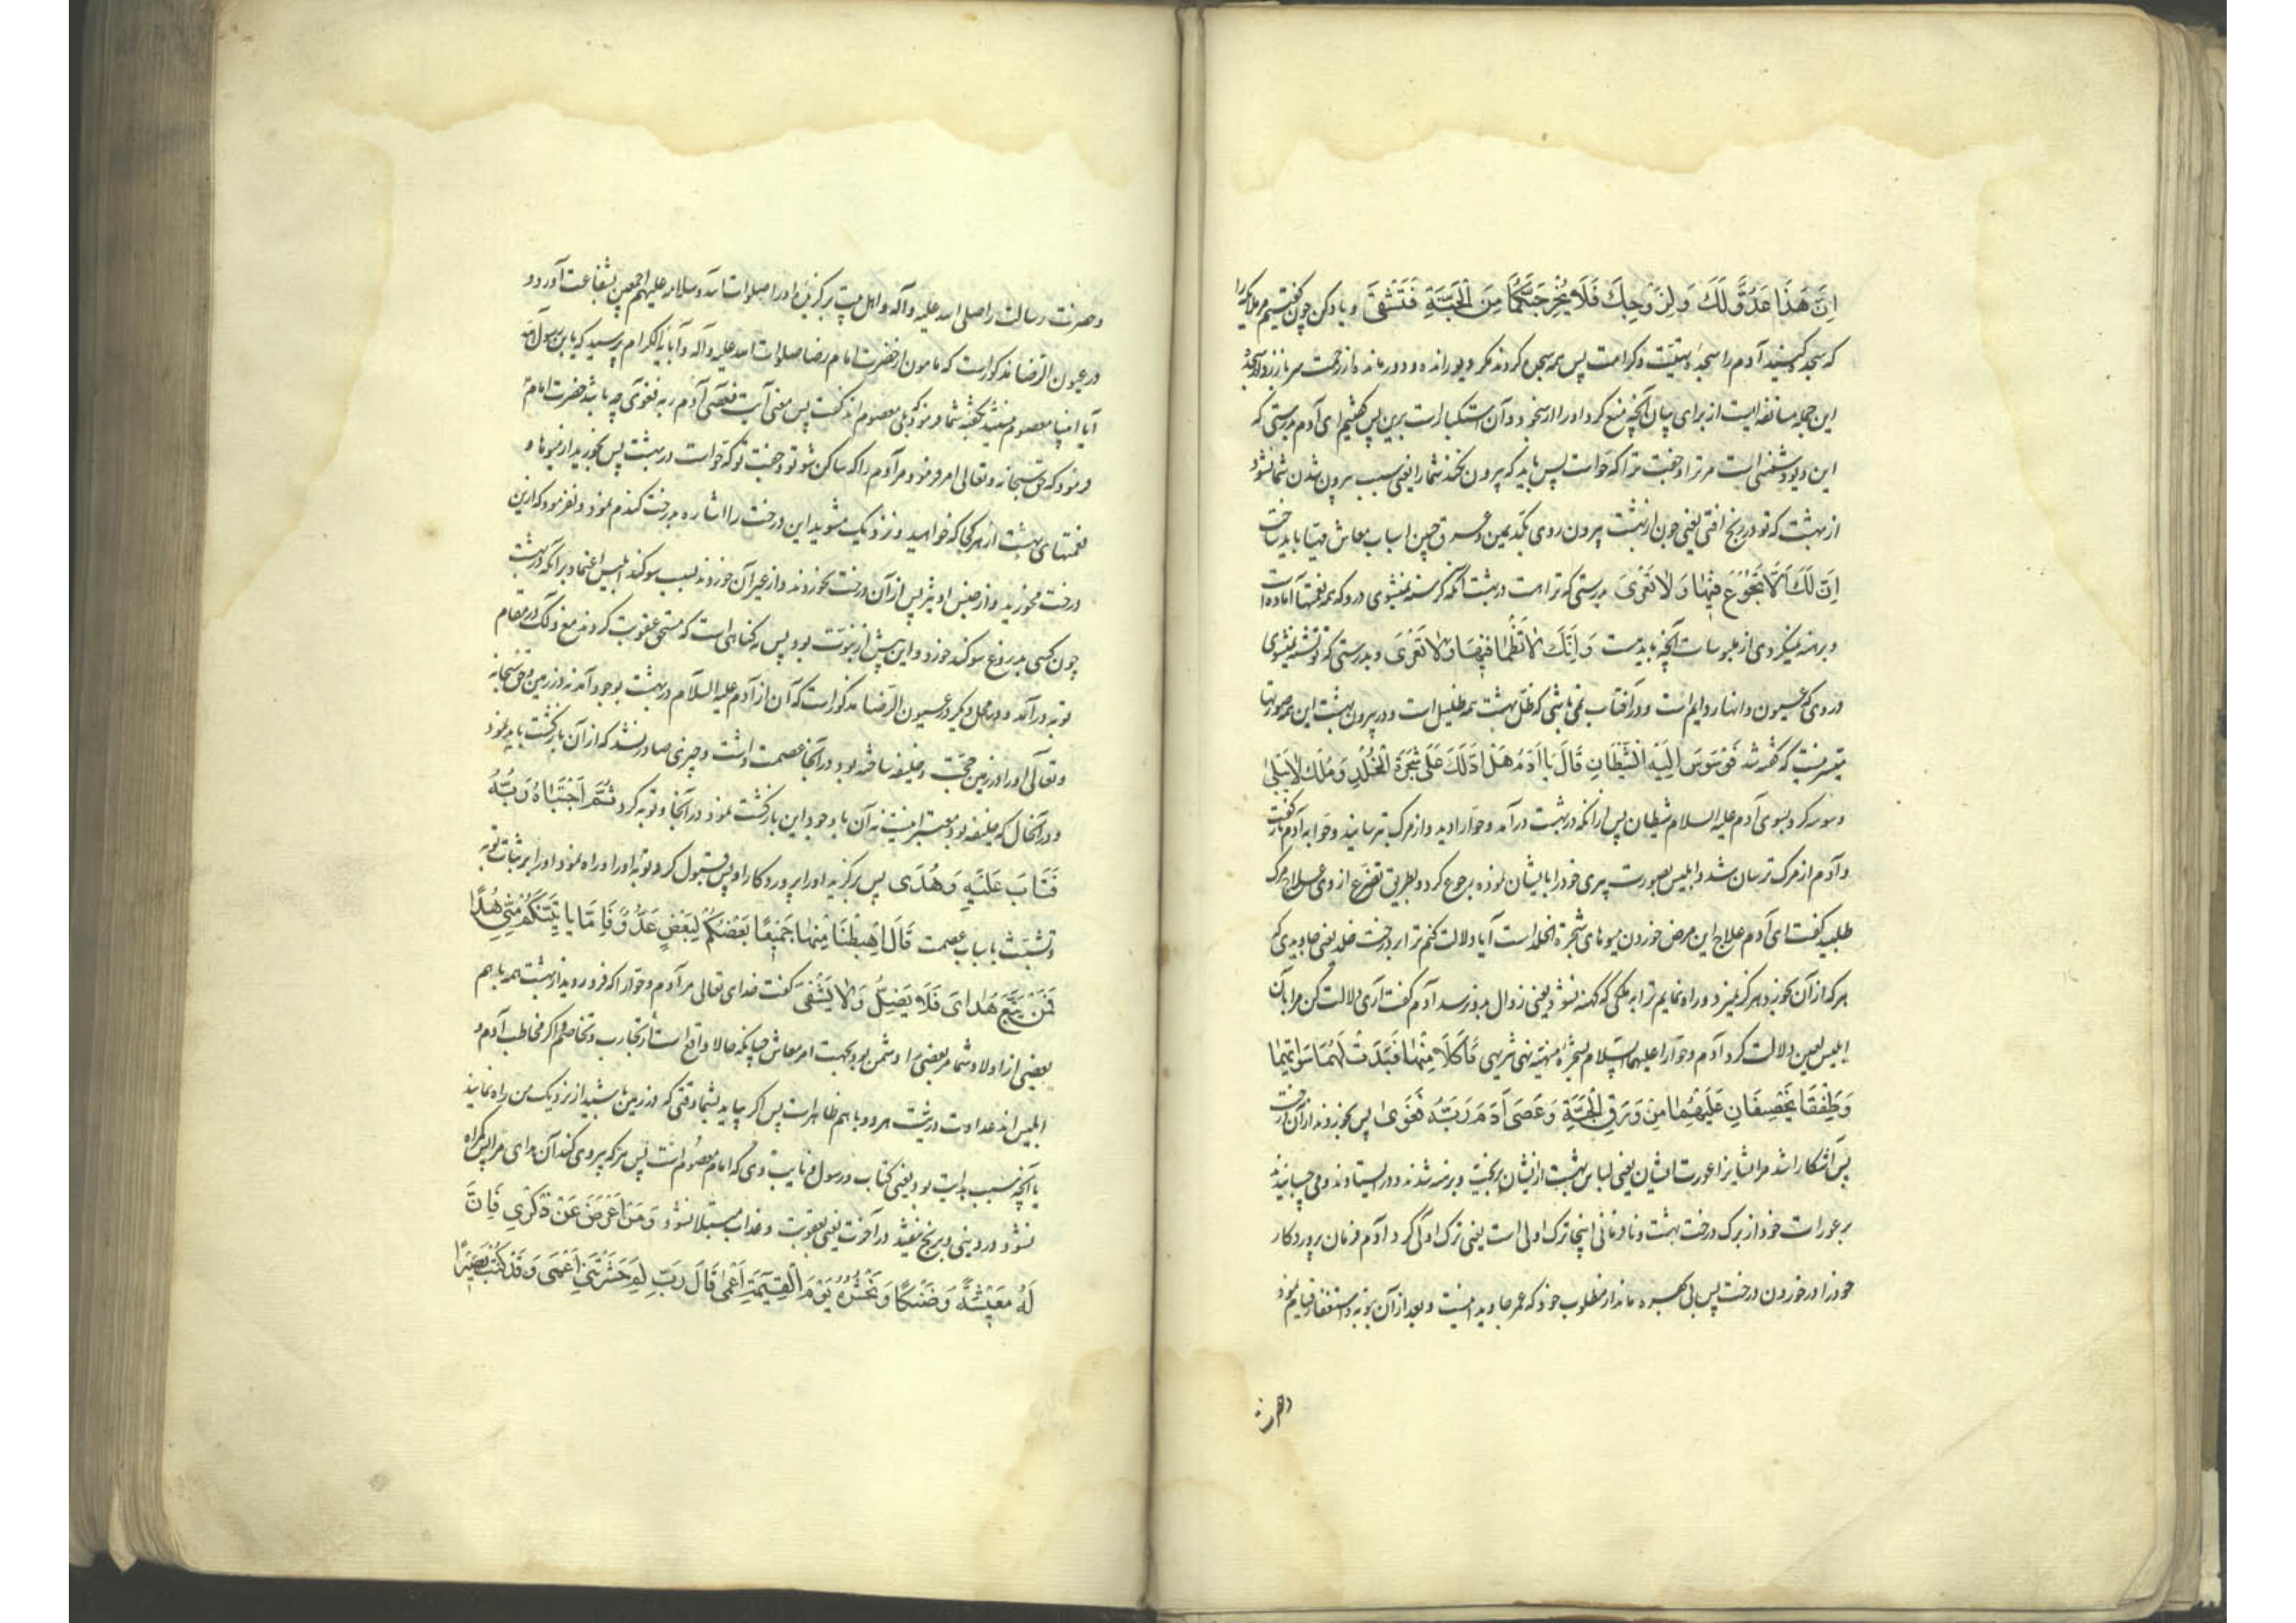 اِنَّ هَذَا عَدُوٌّ لَكَ وَلِزَوْجِكَ فَلَا يُخْرِجَنَّكُمَا مِنَ الْجَنَّةِ فَتَشْقَى و یاد کن چون گفتیم مر ملایکه را
که سجده کنید آدم را سجدهٔ و کرامت پس همه سجده کردند مگر دیو رانده و دور مانده از رحمت سر باز زد از سجده
این جمله مستانفه است از برای بیان آنچه منع کرد او را از سجود و آن استکبار است برین پس گفتیم ای آدم بدرستی که
این دیو دشمنی است مر ترا و جفت ترا که حواست پس باید که بیرون نکند شما را یعنی سبب بیرون شدن شما نشود
از بهشت که تو در رنج افتی یعنی چون از بهشت بیرون روی بکد یمین و عرق جبین اسباب معاش مهیا باید ساخت
اِنَّ لَكَ اَلَّا تَجُوْعَ فِيْهَا وَلَا تَعْرَى بدرستی که ترا هست در بهشت آنکه گرسنه نمیشوی درو که همه نعمتها آماده است
و برهنه نمیگردی از ملبوسات آنچه باید هست وَاَنَّكَ لَا تَظْمَأُ فِيْهَا وَلَا تَعْرَى و بدرستی که تو تشنه نمیشوی
در وی که عیون و انهار دایم است و در آفتاب نمی باشی که ظل بهشت همه ظلیل است و در بیرون بهشت این همه صورتها
میسر نیست که گفته شد فَوَسْوَسَ اِلَيْهِ الشَّيْطَانُ قَالَ يَا اٰدَمُ هَلْ اَدُلُّكَ عَلَى شَجَرَةِ الْخُلْدِ وَمُلْكٍ لَا يَبْلَى
وسوسه کرد بسوی آدم علیه السلام شیطان پس ازانکه در بهشت درآمد و حوا را دید و از مرک بترسانید و حوا به آدم باز گفت
و آدم از مرک ترسان شد و ابلیس بصورت پیری خود را بایشان نموده رجوع کرد و بطریق تضرع از وی علاج مرک
طلبید گفت ای آدم علاج این مرض خوردن میوهای شجرة الخلد است آیا دلالت کنم ترا بر درخت خلد یعنی جاویدی که
هر که از آن بخورد هرگز نمیرد و راه نمایم ترا به ملکی که کهنه نشود یعنی زوال بدو نرسد آدم گفت آری دلالت کن مرا بآن
ابلیس لعین دلالت کرد آدم و حوا را علیهما السلام بشجرهٔ منهیه نهی تنزیهی فَاَكَلَا مِنْهَا فَبَدَتْ لَهُمَا سَوْاٰتُهُمَا
وَطَفِقَا يَخْصِفَانِ عَلَيْهِمَا مِنْ وَرَقِ الْجَنَّةِ وَعَصَى اٰدَمُ رَبَّهُ فَغَوَى پس بخوردند از آن درخت
پس آشکارا شد مر ایشان را عورت ایشان یعنی لباس بهشت از یشان بریخت و برهنه شدند و در ایستادند و می چسبانیدند
بر عورات خود از برک درخت بهشت و نافرمانی اینجا ترک اولی است یعنی ترک اولی کرد آدم فرمان پروردکار
خود را در خوردن درخت پس بی بهره ماند از مطلوب خود که عمر جاوید است و بعد از آن بتوبه و استغفار قیام نمود
و حضرت
و حضرت رسالت را صلی الله علیه و آله و اهل بیت برگزیدهٔ او را صلوات الله و سلامه علیهم اجمعین بشفاعت آورد و
در عیون الرضا مذکور است که مامون از حضرت امام رضا صلوات الله علیه و آله و آبائه الکرام پرسید که یا بن رسول الله
آیا انبیا معصوم نیستند بگفتهٔ شما فرمود که بلی معصوم اند گفت پس معنی آیت فعصی آدم ربه فغوی چه باشد حضرت امام
فرمود که حق سبحانه و تعالی امر فرمود مر آدم را که ساکن شو تو و جفت تو که حواست در بهشت پس بخورید از میوها و
نعمتهای بهشت از هر کجا که خواهید و نزدیک مشوید این درخت را اشاره بدرخت گندم نمود و نفرمود که ازین
درخت مخورید و از جنس او نیز پس از آن درخت نخوردند و از غیر آن خوردند بسبب سوگند ابلیس اعتماد برانکه در بهشت
چون کسی بدروغ سوگند خورد و این پیش از نبوت بود و پس نه گناهی است که مستحق عقوبت کردند مع ذلک در مقام
توبه درآمد و در محل دیگر در عیون الرضا مذکور است که آن از آدم علیه السلام در بهشت بوجود آمد نه در زمین و حق سبحانه
و تعالی او را در زمین حجت و خلیفه ساخته بود و در آنجا عصمت داشت و چیزی صادر نشد که از آن بازگشت باید نمود
و در آنحال که خلیفه بود معتبر اینست نه آن با وجود این بازگشت نمود در آنجا و توبه کرد ثُمَّ اجْتَبَاهُ رَبُّهُ
فَتَابَ عَلَيْهِ وَهُدَى پس برگزید او را پروردکار او پس قبول کرد توبه او را و راه نمود او را بر ثبات توبه
و تشبث باسباب عصمت قَالَ اهْبِطَا مِنْهَا جَمِيْعًا بَعْضُكُمْ لِبَعْضٍ عَدُوٌّ فَاِمَّا يَأْتِيَنَّكُمْ مِنِّي هُدًا
فَمَنْ تَّبَعَ هُدَايَ فَلَا يَضِلُّ وَلَا يَشْقَى گفت خدای تعالی مر آدم و حوا را که فرو روید از بهشت همه با هم
بعضی از اولاد شما مر بعضی را دشمن بود بجهت امر معاش چنانکه حالا واقع است از تجارب و تخاصم و اگر مخاطب آدم و
ابلیس اند عداوت ذریت هر دو با هم ظاهر است پس اگر بیاید بشما وقتی که در زمین باشید از نزدیک من راه نمایند
یا آنچه سبب هدایت بود یعنی کتاب و رسول و نایب وی که امام معصوم است پس هر که پیروی کند آن هدای مرا پس گمراه
نشود در دنیی و برنج نیفتد در آخرت یعنی بعقوبت و عذاب مبتلا نشود وَمَنْ اَعْرَضَ عَنْ ذِكْرِي فَاِنَّ
لَهُ مَعِيْشَةً ضَنْكًا وَنَحْشُرُهُ يَوْمَ الْقِيٰمَةِ اَعْمَى قَالَ رَبِّ لِمَ حَشَرْتَنِي اَعْمَى وَقَدْ كُنْتُ بَصِيْرًا